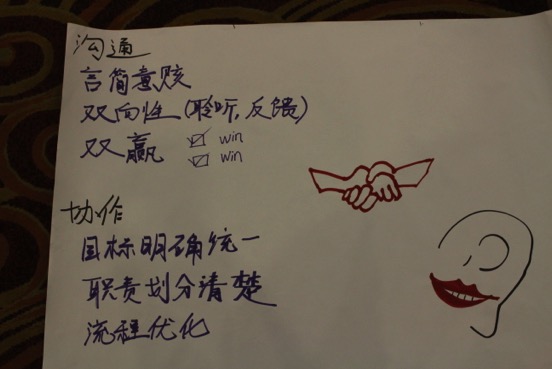 沟通
言简意赅
双向性(聆听,反馈)
双赢 ☑ win
☑ win
协作
目标明确统一
职责划分清楚
流程优化